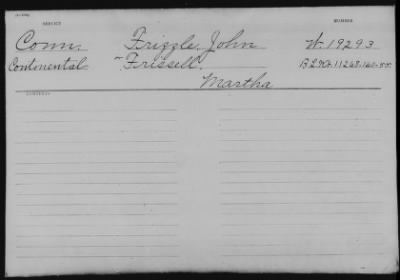 SERVICE NUMBER
Conn. Frizzle, John W. 19293
Continental "Frissell. B.L.Wt. 11268-160-55
Martha
CONTENTS